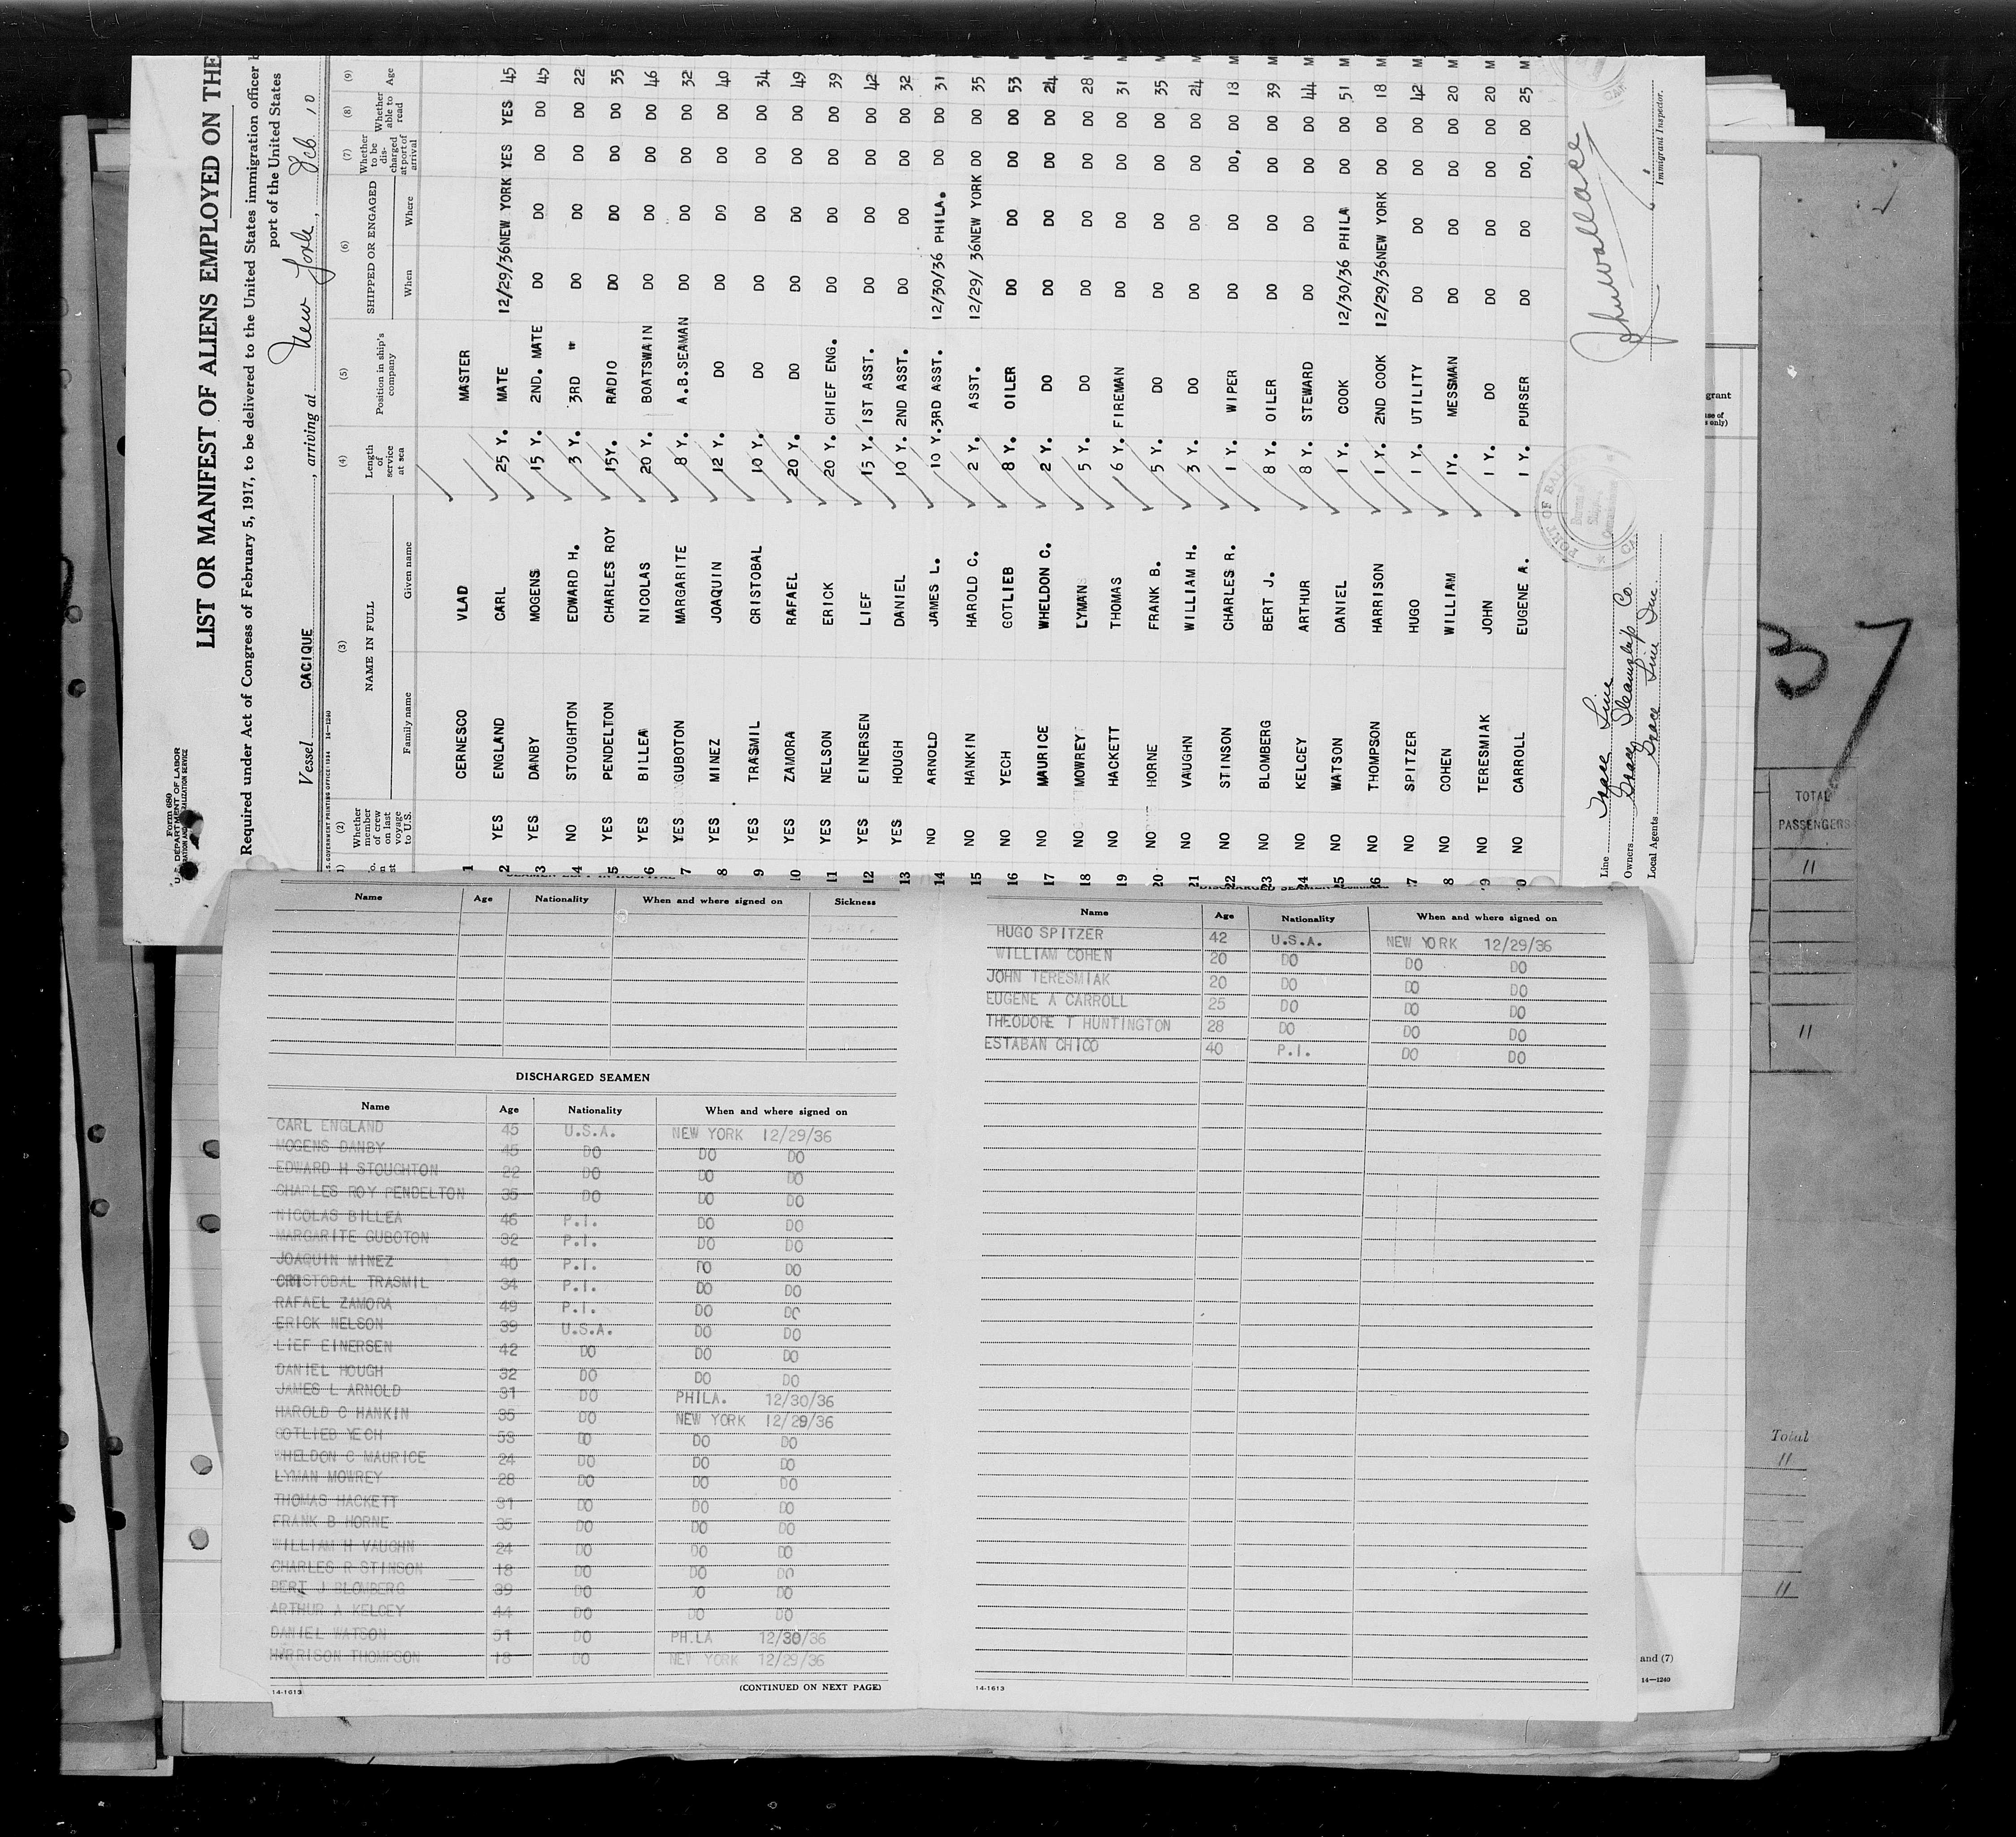 Form 680
U. S. DEPARTMENT OF LABOR
LIST OR MANIFEST OF ALIENS EMPLOYED ON THE
Required under Act of Congress of February 5, 1917, to be delivered to the United States immigration officer
port of the United States
Vessel CACIQUE , arriving at New York , Feb. 10
S. GOVERNMENT PRINTING OFFICE: 1934 14—1240
(2) (3) (4) (5) (6) (7) (8) (9)
Whether member of crew on last voyage to U.S. NAME IN FULL Family name Given name Length of service at sea Position in ship's company SHIPPED OR ENGAGED When Where Whether to be discharged at port of arrival Whether able to read Age
1 CERNESCO VLAD MASTER
2 YES ENGLAND CARL 25 Y. MATE 12/29/36 NEW YORK YES YES 45
3 YES DANBY MOGENS 15 Y. 2ND. MATE DO DO DO DO 45
4 NO STOUGHTON EDWARD H. 3 Y. 3RD " DO DO DO DO 22
5 YES PENDELTON CHARLES ROY 15Y. RADIO DO DO DO DO 35
6 YES BILLEA NICOLAS 20 Y. BOATSWAIN DO DO DO DO 46
7 YES GUBOTON MARGARITE 8 Y. A.B.SEAMAN DO DO DO DO 32
8 YES MINEZ JOAQUIN 12 Y. DO DO DO DO DO 40
9 YES TRASMIL CRISTOBAL 10 Y. DO DO DO DO DO 34
10 YES ZAMORA RAFAEL 20 Y. DO DO DO DO DO 49
11 YES NELSON ERICK 20 Y. CHIEF ENG. DO DO DO DO 39
12 YES EINERSEN LIEF 15 Y. 1ST ASST. DO DO DO DO 42
13 YES HOUGH DANIEL 10 Y. 2ND ASST. DO DO DO DO 32
14 NO ARNOLD JAMES L. 10 Y. 3RD ASST. 12/30/36 PHILA. DO DO 31
15 NO HANKIN HAROLD C. 2 Y. ASST. 12/29/ 36 NEW YORK DO DO 35 M
16 NO YECH GOTLIEB 8 Y. OILER DO DO DO DO 53
17 NO MAURICE WHELDON C. 2 Y. DO DO DO DO DO 24
18 NO MOWREY LYMAN 5 Y. DO DO DO DO DO 28
19 NO HACKETT THOMAS 6 Y. FIREMAN DO DO DO DO 31
20 NO HORNE FRANK B. 5 Y. DO DO DO DO DO 35
21 NO VAUGHN WILLIAM H. 3 Y. DO DO DO DO DO 24 M
22 NO STINSON CHARLES R. 1 Y. WIPER DO DO DO, DO 18 M
23 NO BLOMBERG BERT J. 8 Y. OILER DO DO DO DO 39 M
24 NO KELCEY ARTHUR 8 Y. STEWARD DO DO DO DO 44 M
25 NO WATSON DANIEL 1 Y. COOK 12/30/36 PHILA DO DO 51 M
26 NO THOMPSON HARRISON 1 Y. 2ND COOK 12/29/36 NEW YORK DO DO 18 M
7 NO SPITZER HUGO 1 Y. UTILITY DO DO DO DO 42 M
8 NO COHEN WILLIAM 1Y. MESSMAN DO DO DO DO 20 M
9 NO TERESMIAK JOHN 1 Y. DO DO DO DO DO 20 M
0 NO CARROLL EUGENE A. 1 Y. PURSER DO DO DO, DO 25 M
Line Grace Line
Owners Grace Steamship Co.
Local Agents Grace Line Inc.
PORT OF
Immigrant Inspector.
Name Age Nationality When and where signed on Sickness
DISCHARGED SEAMEN
Name Age Nationality When and where signed on
CARL ENGLAND 45 U.S.A. NEW YORK 12/29/36
MOGENS DANBY 45 DO DO DO
EDWARD H STOUGHTON 22 DO DO DO
CHARLES ROY PENDELTON 35 DO DO DO
NICOLAS BILLEA 46 P.I. DO DO
MARGARITE GUBOTON 32 P.I. DO DO
JOAQUIN MINEZ 40 P.I. DO DO
CRISTOBAL TRASMIL 34 P.I. DO DO
RAFAEL ZAMORA 49 P.I. DO DO
ERICK NELSON 39 U.S.A. DO DO
LIEF EINERSEN 42 DO DO DO
DANIEL HOUGH 32 DO DO DO
JAMES L ARNOLD 31 DO PHILA. 12/30/36
HAROLD C HANKIN 35 DO NEW YORK 12/29/36
GOTLIEB YECH 53 DO DO DO
WHELDON C MAURICE 24 DO DO DO
LYMAN MOWREY 28 DO DO DO
THOMAS HACKETT 31 DO DO DO
FRANK B HORNE 35 DO DO DO
WILLIAM H VAUGHN 24 DO DO DO
CHARLES R STINSON 18 DO DO DO
BERT J BLOMBERG 39 DO DO DO
ARTHUR A KELCEY 44 DO DO DO
DANIEL WATSON 51 DO PH.LA 12/30/36
HARRISON THOMPSON 18 DO NEW YORK 12/29/36
14-1613 (CONTINUED ON NEXT PAGE)
Name Age Nationality When and where signed on
HUGO SPITZER 42 U.S.A. NEW YORK 12/29/36
WILLIAM COHEN 20 DO DO DO
JOHN TERESMIAK 20 DO DO DO
EUGENE A CARROLL 25 DO DO DO
THEODORE T HUNTINGTON 28 DO DO DO
ESTABAN CHICO 40 P.I. DO DO
14-1613
37
TOTAL PASSENGERS
11
11
Total
11
11
and (7)
14—1240